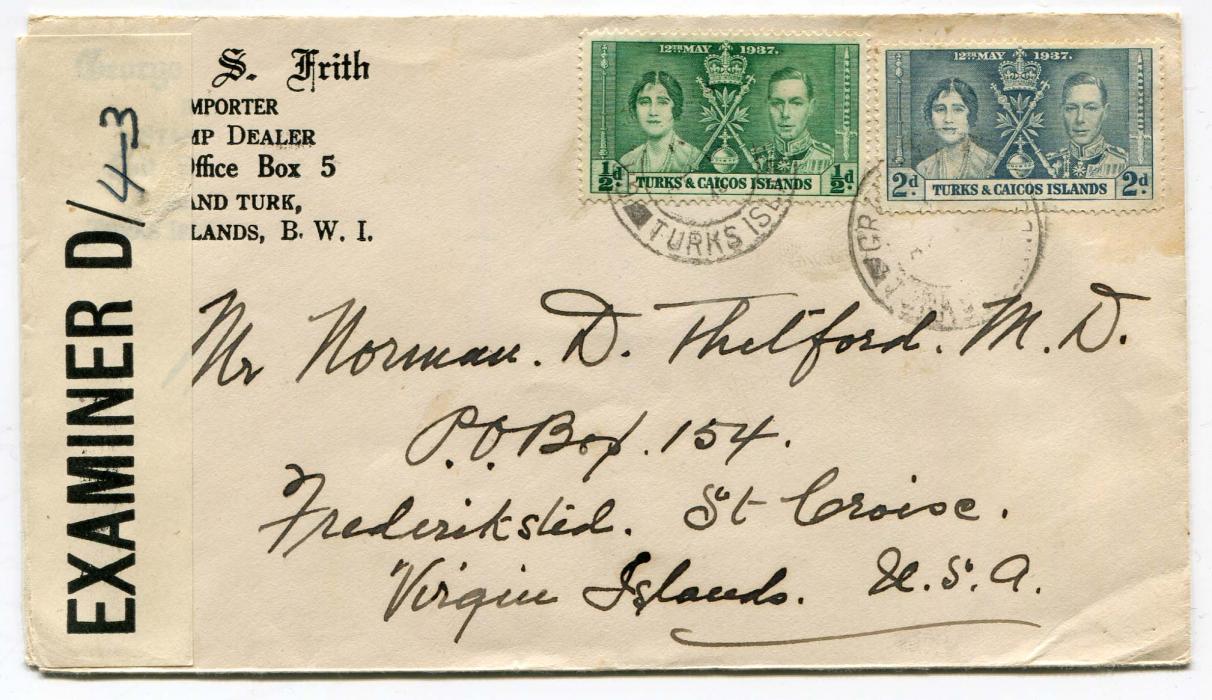 George S. Frith
MPORTER
MP DEALER
Office Box 5
AND TURK,
LANDS, B. W. I.
EXAMINER D/43
12TH MAY 1937.
½d. TURKS & CAICOS ISLANDS ½d.
12TH MAY 1937.
2d TURKS & CAICOS ISLANDS 2d.
TURKS ISL
GRA
Mr Norman. D. Thelford. M. D.
P.O Box. 154.
Frederiksted. St Croise.
Virgin Islands. U.S.A.